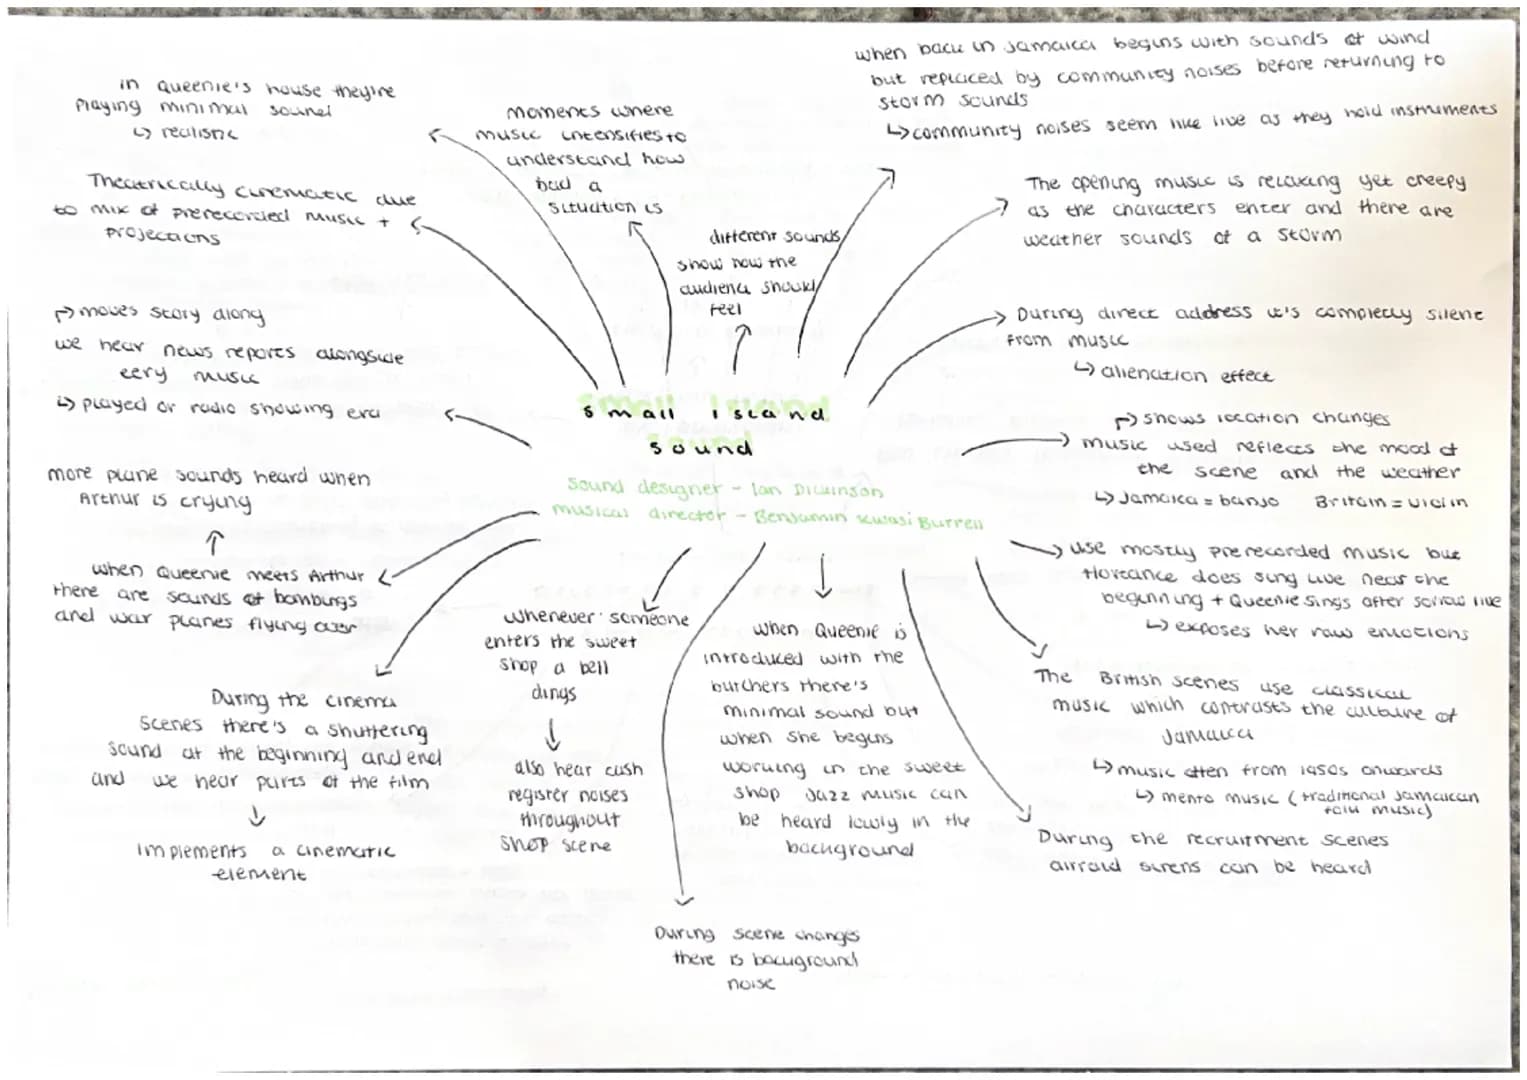 small island
sound
Sound designer - Ian Dickinson
musical director - Benjamin Kwasi Burrell
in Queenie's house they're
playing minimal sound
↳ realistic
Theatrically cinematic due
to mix of prerecorded music +
projections
moments where
music intensifies to
understand how
bad a
situation is
different sounds
show how the
audience should
feel
when back in Jamaica begins with sounds of wind
but replaced by community noises before returning to
storm sounds
↳ community noises seem like live as they hold instruments
The opening music is relaxing yet creepy
as the characters enter and there are
weather sounds of a storm
During direct address it's completly silent
from music
↳ alienation effect
↱ shows location changes
music used reflects the mood of
the scene and the weather
↳ Jamaica = banjo Britain = violin
use mostly prerecorded music but
Hortance does sing live near the
beginning + Queenie sings after sorrow live
↳ exposes her raw emotions
The British scenes use classical
music which contrasts the culture of
Jamaica
↳ music often from 1950s onwards
↳ mento music (traditional Jamaican
folk music)
During the recruitment scenes
airraid sirens can be heard
when Queenie is
introduced with the
butchers there's
minimal sound but
when she begins
working in the sweet
shop Jazz music can
be heard lowly in the
background
During scene changes
there is background
noise
whenever someone
enters the sweet
shop a bell
dings
also hear cash
register noises
throughout
shop scene
During the cinema
scenes there's a shuttering
sound at the beginning and end
and we hear parts of the film
implements a cinematic
element
when Queenie meets Arthur
there are sounds of bombings
and war planes flying over
more plane sounds heard when
Arthur is crying
↱ moves story along
we hear news reports alongside
eery music
↳ played on radio showing era